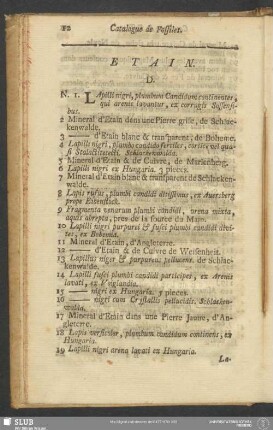 12 Catalogue de Fossiles.
ETAIN.
D.
N. 1. LApilli nigri, plumbum Candidum continentes,
qui arenis lavantur, ex corrugis
bus.
2 Mineral d'Etain dans une Pierre grise, de Schlac-
kenwalde.
3 — d'Etain blanc & transparent, de Boheme.
4 Lapilli nigri, plumbi candidi feraces, cortice vel qua-
si Schlackenwalde.
5 Mineral d'Etain & de Cuivre, de
6 Lapilli nigri ex Hungaria. 3 pieces.
7 Mineral d'Etain blanc & transparent de Schlacken-
walde.
8 Lapis rufus, plumbi candidi ditissimus, ex Aursberg
prope Eibenstock.
9 Fragmenta venarum plumbi candidi, urena mixta,
aquis abrepta, pres de la source du Main.
10 Lapilli nigri purpurei & fusci plumbi candidi divi-
tes, ex Bohemia.
11 Mineral d'Etain, d'Angleterre.
12 — d'Etain & de Cuivre de
13 Lapillus niger & purpureus pellucens, de Schlac-
kenwalde.
14 Lapilli fusci plumbi candidi participes, ex Arenis
lavati, ex Voigtlandia.
15 — nigri ex Hungaria. 5 pieces.
16 — nigri cum Crystallis pellucidis. Schlacken-
waldia.
17 Mineral d'Etain dans une Pierre Jaune, d'An-
gleterre.
18 Lapis versicolor, plumbum candidum continens, ex
Hungaria.
19 Lapilli nigri arena lavati ex Hungaria.
La-
SLUB